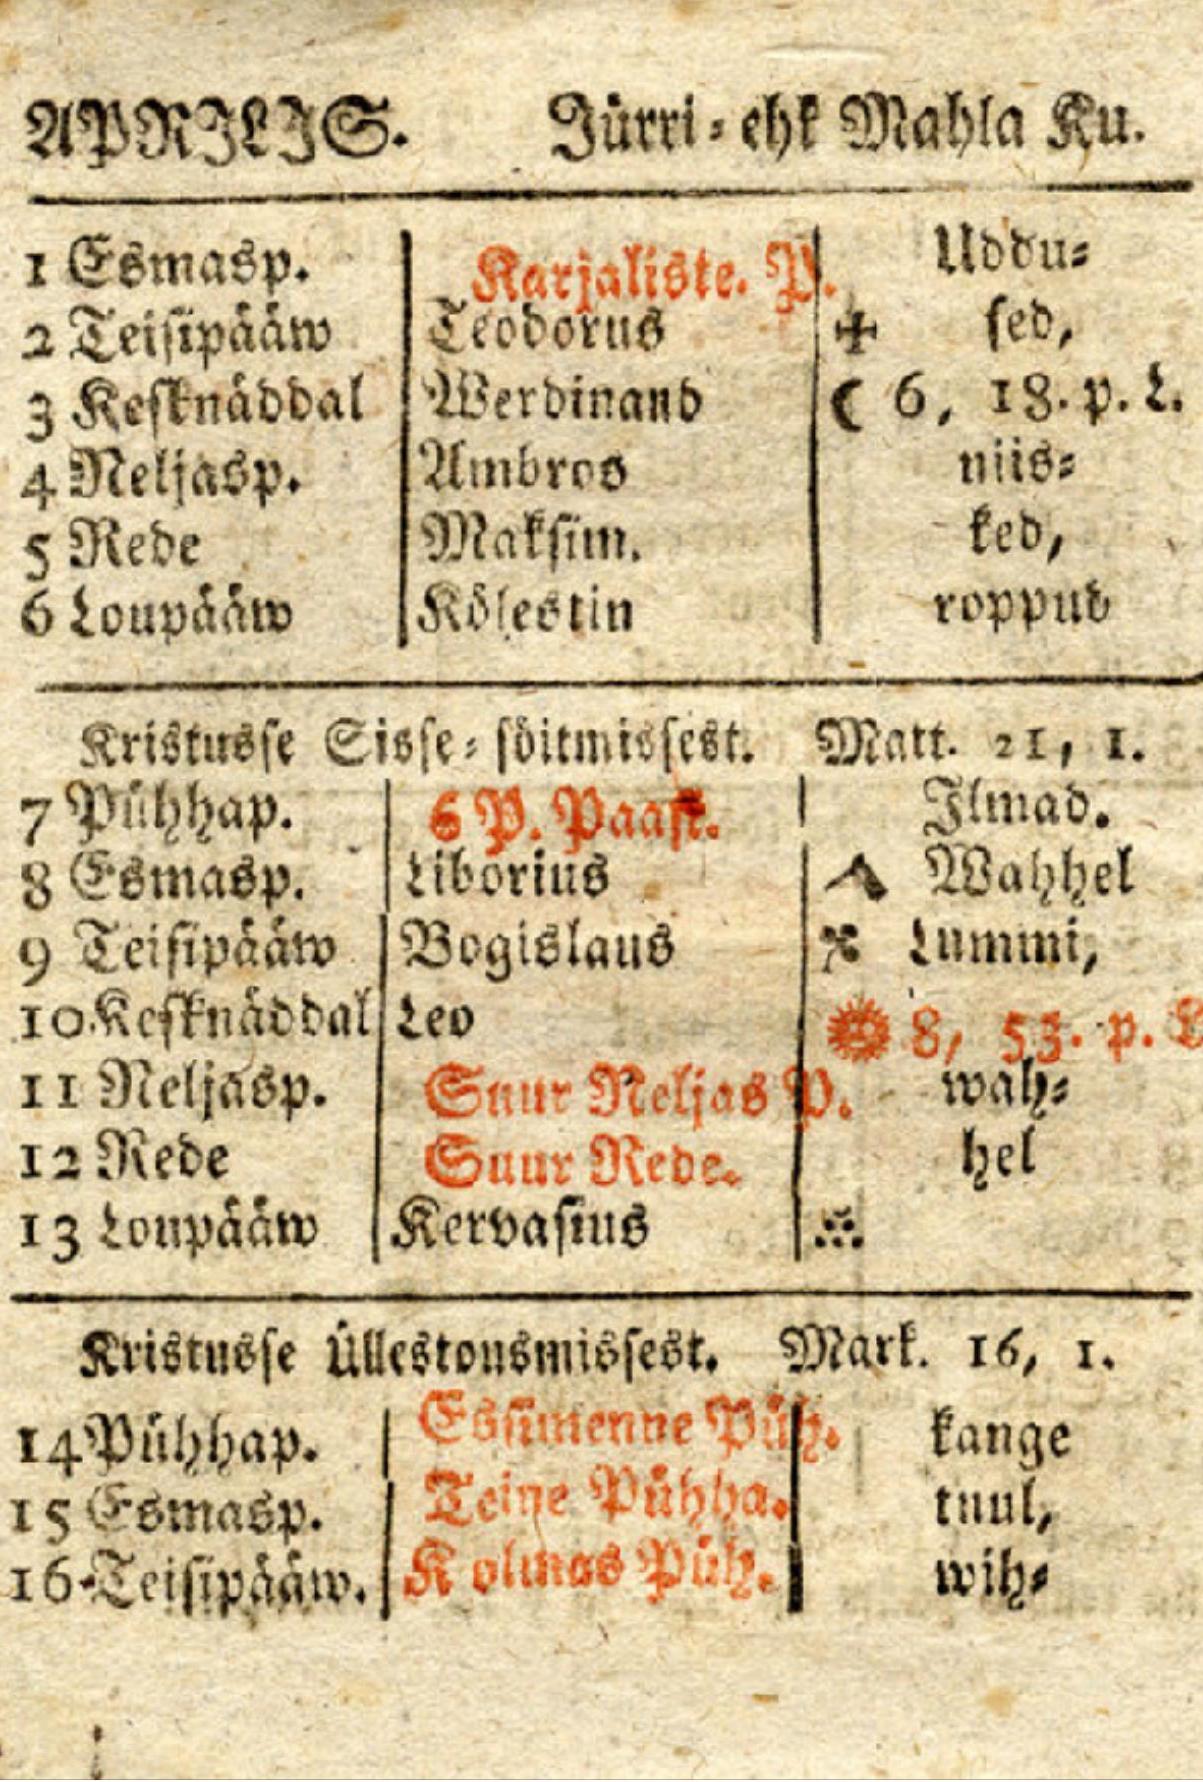 APRILIS. Jürri-ehk Mahla Ku.
1 Esmasp. Karjaliste. P. Uddu-
2 Teisipääw Teodorus sed,
3 Kesknäddal Werdinand ☾ 6, 18. p. L.
4 Neljasp. Ambros niis-
5 Rede Maksim. ked,
6 Loupääw Kölestin roppud
Kristusse Sisse-söitmissest. Matt. 21, 1.
7 Pühhap. 6 P. Paast. Ilmad.
8 Esmasp. Liborius Wahhel
9 Teisipääw Bogislaus Lummi,
10 Kesknäddal Leo 8, 53. p. L
11 Neljasp. Suur Neljas P. wah-
12 Rede Suur Rede. hel
13 Loupääw Kervasius
Kristusse Üllestousmissest. Mark. 16, 1.
14 Pühhap. Essimenne Püh. kange
15 Esmasp. Teine Pühha. tuul,
16 Teisipääw. Kolmas Püh. wih-